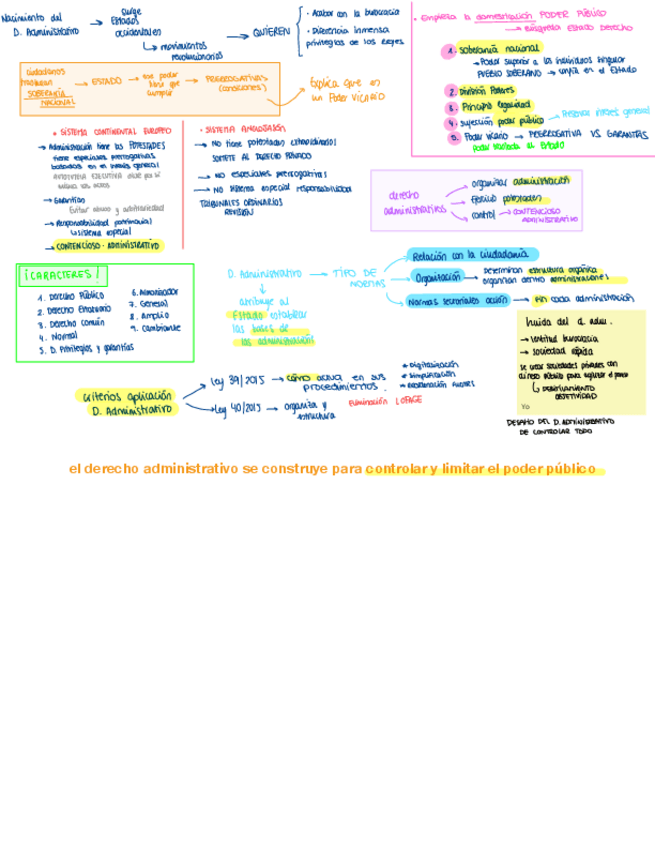 Nacimiento del
D. Administrativo
surge
Estados
occidentales
movimientos
revolucionarios
QUIEREN
· Acabar con la burocracia
· Diferencia inmensa
privilegios de los Reyes
· Empieza la domesticación PODER PÚBLICO
búsqueda ESTADO DERECHO
1. soberanía nacional
Poder superior a los individuos singular
PUEBLO SOBERANO → confía en el Estado
2. División Poderes
3. Principio legalidad
4. sujección poder público → Preservar interés general
5. Poder Vicario → PRERROGATIVA VS GARANTÍAS
ciudadanos
SOBERANÍA
NACIONAL
ESTADO
ese poder
tiene que
cumplir
PRERROGATIVAS
Explica que es
un Poder VICARIO
* SISTEMA CONTINENTAL EUROPEO
→ Administración tiene las POTESTADES
tiene especiales prerrogativas
basadas en el interés general
→ Garantías
Evitar abuso y arbitrariedad
→ Responsabilidad patrimonial
sistema especial
→ CONTENCIOSO-ADMINISTRATIVO
* SISTEMA ANGLOSAJÓN
→ NO tiene potestades extraordinarias
SOMETE AL DERECHO PRIVADO
→ NO especiales prerrogativas
→ NO sistema especial responsabilidad
TRIBUNALES ORDINARIOS
REVISIÓN
derecho
administrativo
organizar administración
Ejercicio potestades
control → CONTENCIOSO
ADMINISTRATIVO
¡CARACTERES!
1. Derecho Público
2. Derecho Estatutario
3. Derecho Común
4. Normal
5. D. Privilegios y garantías
6. Armonizador
7. General
8. Amplio
9. Cambiante
D. Administrativo → TIPO DE
NORMAS
atribuye al
Estado establecer
las bases de
las administraciones
Relación con la ciudadanía
Organización → Determinan estructura orgánica
organizan dentro administraciones
Normas sectoriales acción → fin cada administración
huida del d. adm.
→ lentitud burocracia
→ sociedad rápida
se crean sociedades privadas con
dinero público para agilizar el poder
OBJETIVIDAD
Yo
DESAFÍO DEL D. ADMINISTRATIVO
DE CONTROLAR TODO
Criterios aplicación
D. Administrativo
Ley 39/2015 → cómo actúa en sus
procedimientos
* Digitalización
* Simplificación
Ley 40/2015 → organiza y
estructura
Eliminación LOFAGE
el derecho administrativo se construye para controlar y limitar el poder público